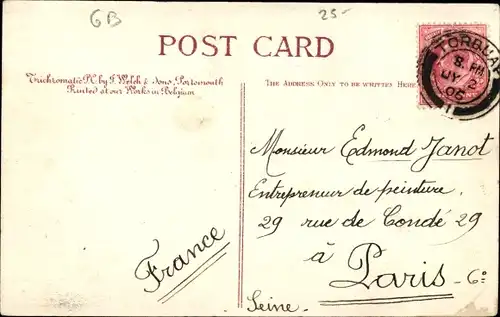 GB
25-
POST CARD
Trichromatic P.C. by F. Welch & Sons, Portsmouth
Printed at our Works in Belgium
THE ADDRESS ONLY TO BE WRITTEN HERE
TORQUAY
8. PM
JY 2
05
Monsieur Edmond Janot
Entrepreneur de peinture
29 rue de Condé 29
à
Paris - 6e
Seine.
France